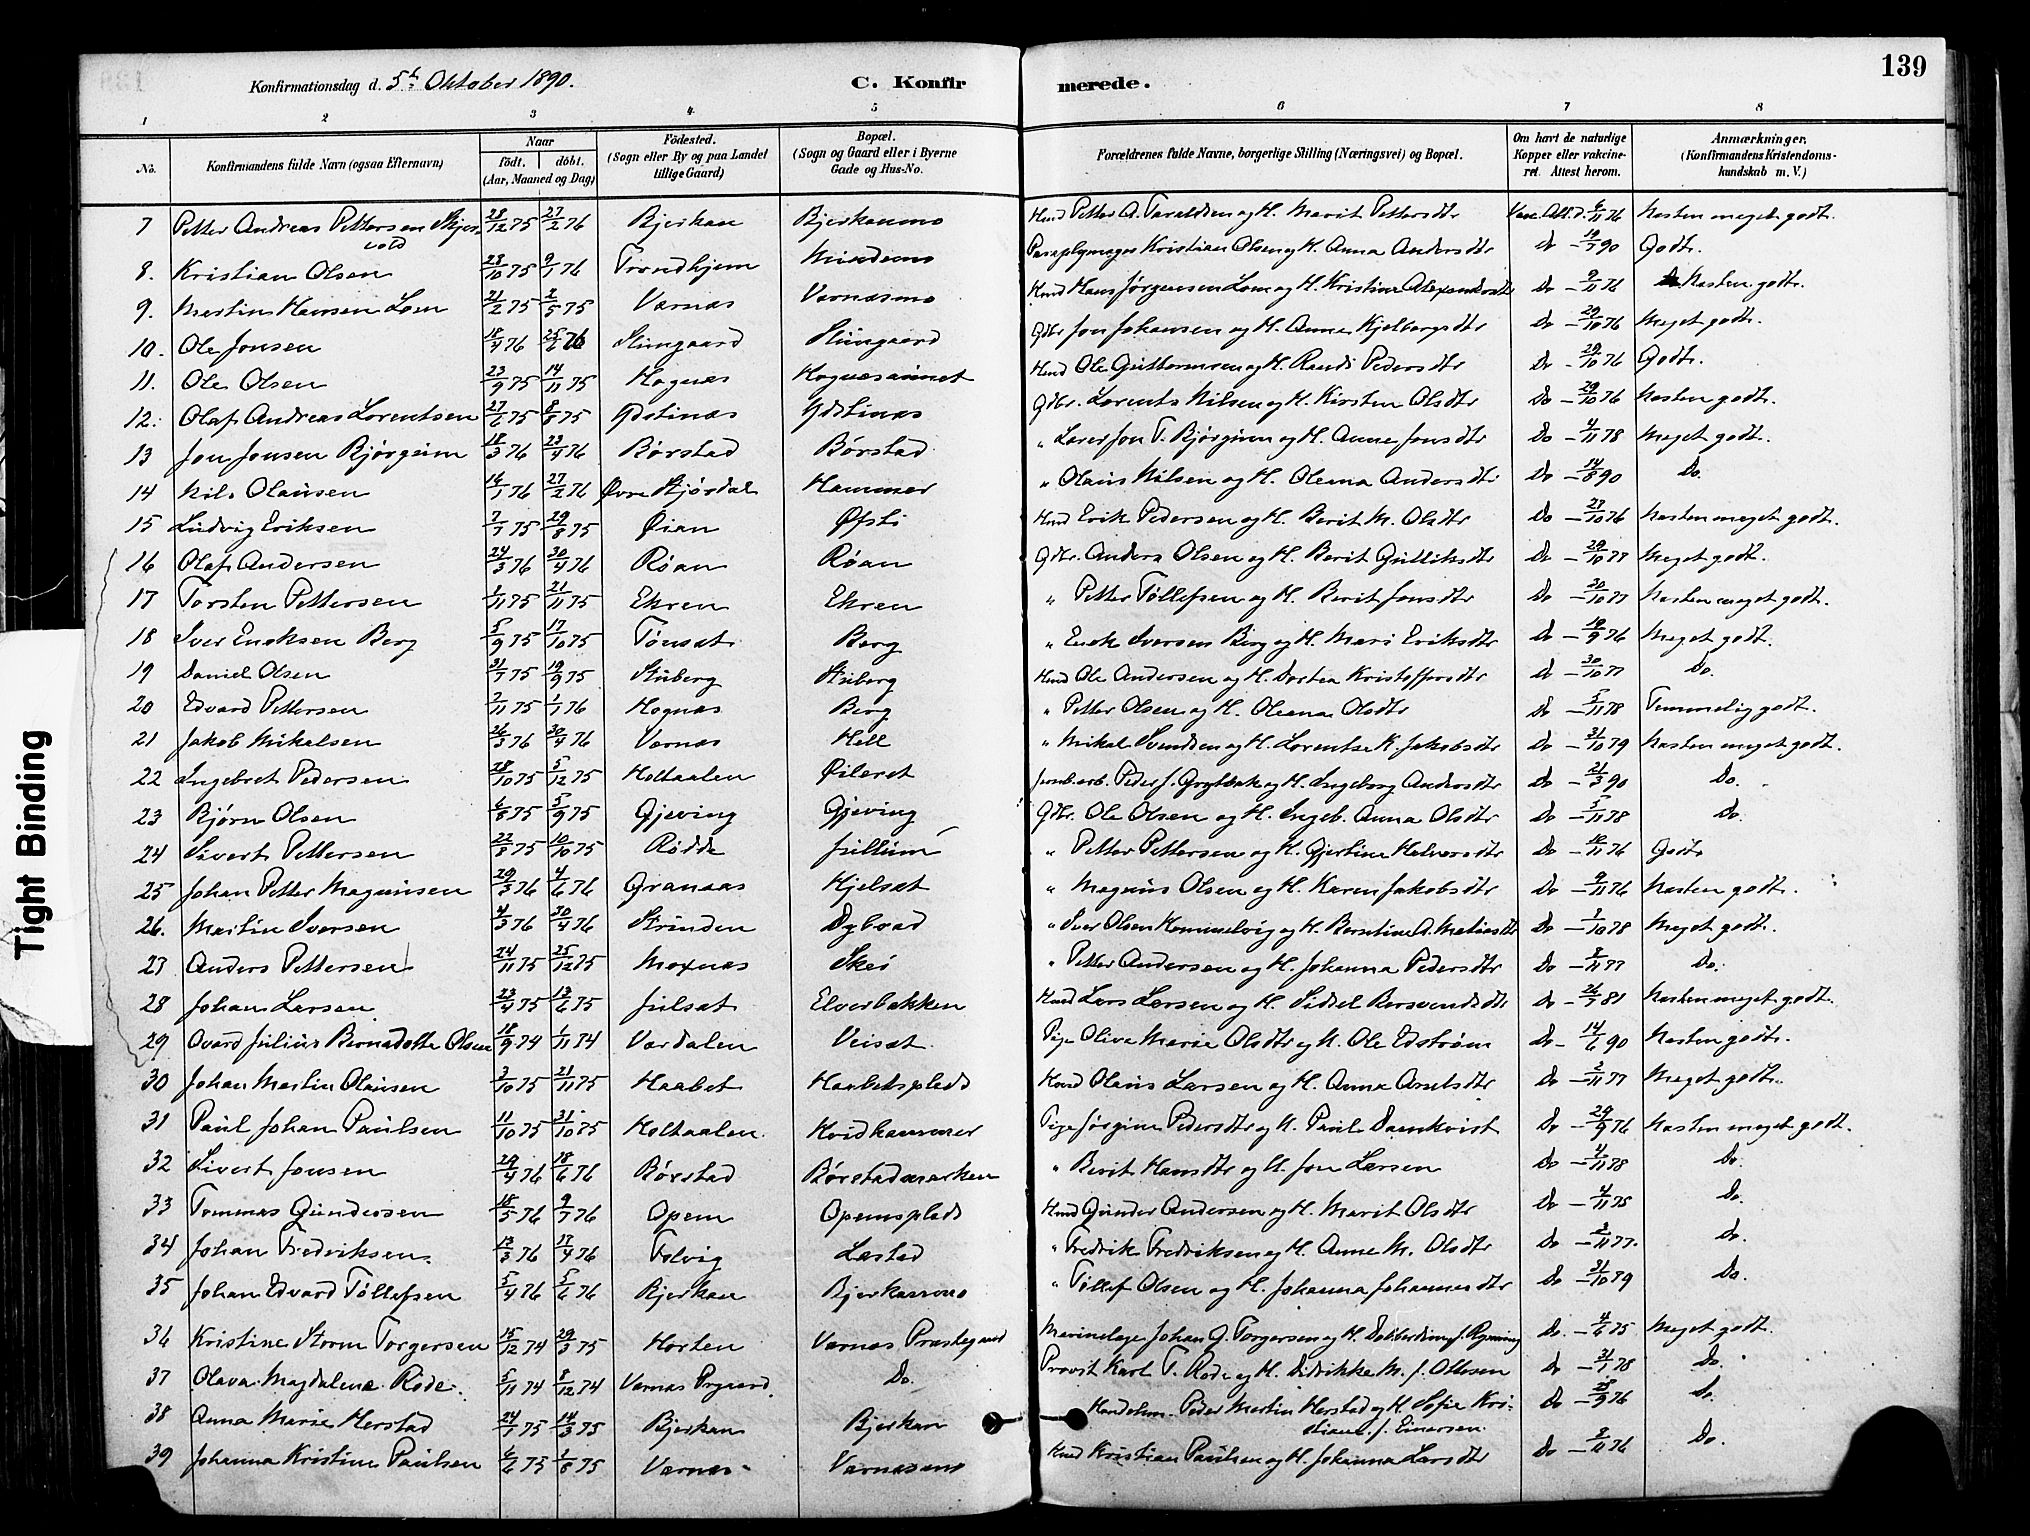 139
Konfirmationsdag d. 5te Oktober 1890.
C. Konfirmerede.
1 2 3 4 5 6 7 8
No. | Konfirmandens fulde Navn (ogsaa Efternavn) | Naar født. døbt. (Aar, Maaned og Dag) | Födested. (Sogn eller By og paa Landet tillige Gaard) | Bopæl. (Sogn og Gaard eller i Byerne Gade og Hus-No. | Forældrenes fulde Navne, borgerlige Stilling (Næringsvei) og Bopæl. | Om havt de naturlige Kopper eller vakcineret. Attest herom. | Anmærkninger, (Konfirmandens Kristendomskundskab m. V.)
7 Petter Andreas Pettersen Skjervold 28/12 75 27/2 76 Bjerkan Bjerkanmo Hmd Petter A. Taraldsen og H. Marit Pettersdtr Vacc. Att. d. 6/11 76 Næsten meget godt.
8. Kristian Olsen 23/10 75 9/1 76 Trondhjem Mindemo Paraplymager Kristian Olsen og H. Anna Andersdtr Do - 19/7 90 Godt.
9. Martin Hansen Loen 21/2 75 2/5 75 Værnæs Værnæsmo Hmd Hans Jørgensen Loen og H. Kristine Alexandersdtr Do - 9/11 76 Næsten godt.
10. Ole Jonsen 18/4 76 25/6 76 Stüngaard Stüngaard Gdbr Jon Johansen og H. Anne Kjelbergsdtr Do - 29/10 76 Meget godt.
11. Ole Olsen 23/9 75 14/11 75 Hognæs Hognæsaunet Hmd Ole Guttormsen og H. Randi Pedersdtr Do - 29/10 76 Godt.
12. Olaf Andreas Lorentsen 27/6 75 8/8 75 Ydstinæs Ydstinæs Gdbr. Lorents Nilsen og H. Kirsten Olsdtr Do - 29/10 76 Næsten godt.
13 Jon Jonsen Bjørgum 18/3 76 23/4 76 Børstad Børstad " Lærer Jon T. Bjørgum og H. Anne Jonsdtr Do - 4/11 78 Meget godt.
14 Nils Olaüsen 14/1 76 27/2 76 Øvre Stjørdal Hammer " Olaüs Nilsen og H. Olema Andersdtr Do - 14/8 90 Do.
15 Ludvig Eriksen 7/7 75 29/8 75 Øian Øfsti Hmd Erik Pedersen og H. Berit M. Olsdtr Do - 27/10 76 Næsten meget godt.
16 Olaf Andersen 24/3 76 30/4 76 Røan Røan Gdbr. Anders Olsen og H. Berit Gulliksdtr Do - 29/10 77 Meget godt.
17 Torsten Pettersen 1/11 75 21/11 75 Ekren Ekren " Petter Tøllefsen og H. Berit Jonsdtr Do - 30/10 77 Næsten meget godt.
18 Iver Enoksen Berg 5/9 75 17/10 75 Tønsæt Berg " Enok Iversen Berg og H. Mari Eriksdtr Do - 19/9 76 Meget godt.
19 Daniel Olsen 31/7 75 19/9 75 Stüberg Stüberg Hmd Ole Andersen og H. Dortea Kristoffersdtr Do - 30/10 77 Do.
20 Edvard Pettersen 2/11 75 1/1 76 Hognæs Berg " Petter Olsen og H. Olema Olsdtr Do - 5/11 78 Temmelig godt.
21 Jakob Mikalsen 26/3 76 30/4 76 Værnæs Hell " Mikal Svendsen og H. Lorentse K. Jakobsdtr Do - 31/10 79 Næsten meget godt.
22 Ingebret Pedersen 28/10 75 5/12 75 Holtaalen Øileret Jernb.arb. Peder J. Grytbak og H. Ingeborg Andersdtr Do - 21/3 90 Do.
23 Bjørn Olsen 6/8 75 5/9 75 Gjeving Gjeving Gdbr. Ole Olsen og H. Ingeb. Anna Olsdtr Do - 5/11 78 Do.
24 Sivert Pettersen 22/8 75 10/10 75 Rødde Jullum " Petter Pettersen og H. Gjertine Halvorsdtr Do - 10/11 76 Godt
25 Johan Petter Magnüsen 29/3 76 4/6 76 Granaas Kjelsæt " Magnüs Olsen og H. Karen Jakobsdtr Do - 9/11 76 Næsten godt.
26. Martin Iversen 4/3 76 30/4 76 Strinden Dybvad " Iver Olsen Hommelvig og H. Berntine A. Matiasdtr Do - 1/10 78 Meget godt.
27 Anders Pettersen 24/11 75 25/12 75 Moxnæs Skei " Petter Andersen og H. Johanna Pedersdtr Do - 2/11 77 Do.
28 Johan Larsen 23/4 75 13/6 75 Julsæt Elverbakken Hmd Lars Larsen og H. Sidsel Bersvendsdtr Do - 26/7 81 Næsten meget godt.
29 Ovard Jülius Bernadotte Olsen 18/9 74 1/11 74 Værdalen Veisæt Pige Oliva Marie Olsdtr og U. Ole Edstrøm Do - 14/6 90 Næsten godt.
30 Johan Martin Olaüsen 3/10 75 21/11 75 Haabet Haabetsplads Hmd Olaüs Larsen og H. Anna Arntsdtr Do - 2/11 77 Meget godt.
31 Paül Johan Paülsen 11/10 75 31/10 75 Holtaalen Kvidkansvær Pige Jørgine Pedersdtr og U. Paül Damkvist Do - 29/9 76 Næsten meget godt.
32 Sivert Jonsen 29/4 76 18/6 76 Børstad Børstadmarken " Berit Hansdtr og U. Jon Larsen Do - 4/11 78 Do.
33 Tommas Gündersen 18/5 76 9/7 76 Opem Opemsplads Hmd Günder Andersen og H. Marit Olsdtr Do - 4/11 78 Do.
34 Johan Fredriksen 13/3 76 17/4 76 Folvig Læstad " Fredrik Fredriksen og H. Anne M. Olsdtr Do - 2/11 77. Do.
35 Johan Edvard Tøllefsen 5/4 76 5/6 76 Bjerkan Bjerkanmo " Tøllef Olsen og H. Johanna Johannesdtr Do - 31/10 79 Do.
36 Kristine Storm Torgersen 15/12 74 29/3 75 Horten Værnæs Præstegaard Marinelæge Johan G. Torgersen og H. f. Rynning Do. - 4/6 75 Meget godt.
37 Olava Magdalene Rode 5/11 74 8/12 74 Værnæs Prgaard. Do. Provst Karl T. Rode og H. Didrikke M. f. Ottesen Do - 31/1 78 Do.
38 Anna Marie Herstad 24/1 75 14/3 75 Bjerkan Bjerkan Handelsm. Peder Martin Herstad og H. Sofie Kristiane f. Einersen. Do - 25/9 76 Do.
39 Johanna Kristine Paülsen 6/6 75 1/8 75 Værnæs Værnæsmo Hmd Kristian Paülsen og H. Johanna Larsdtr Do - 8/11 76 Do.
Tight Binding